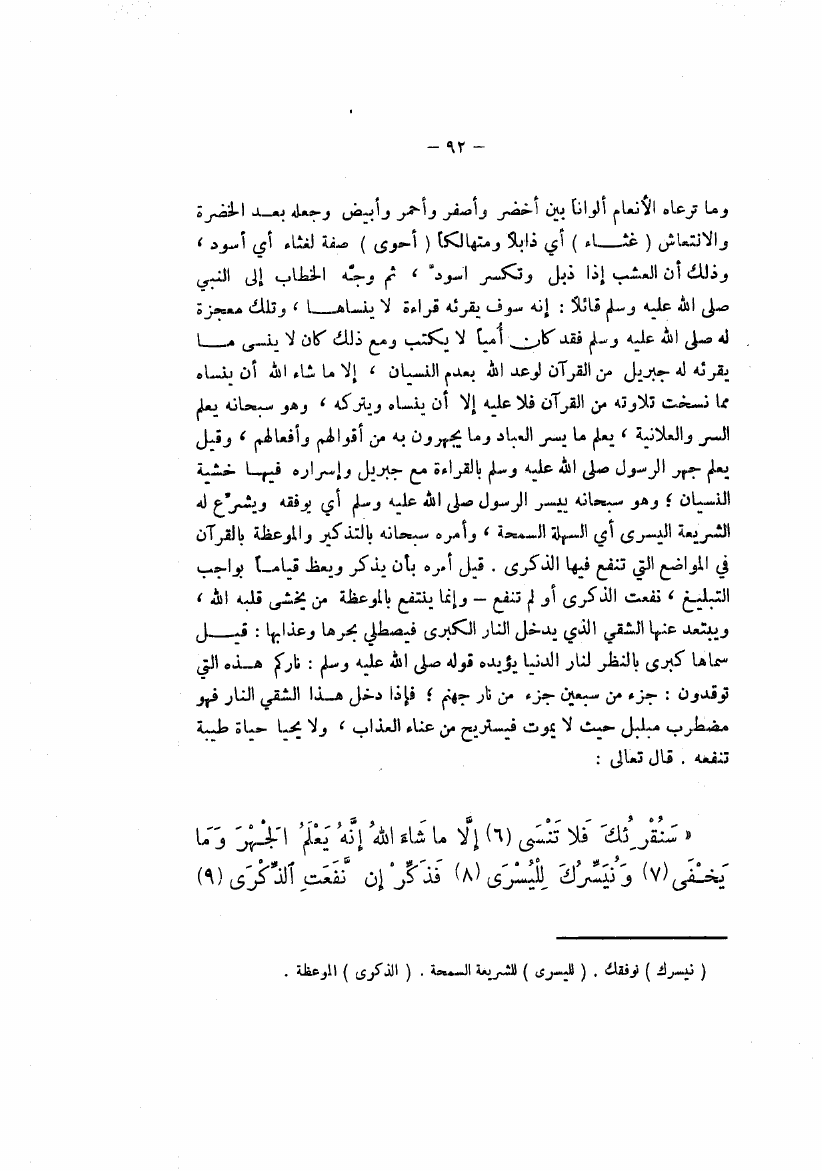 – ٩٢ –
وما ترعاه الأنعام ألواناً بين أخضر وأصفر وأحمر وأبيض وجعله بعد الخضرة
والانتعاش ( غثاء ) أي ذابلاً ومتهالكاً ( أحوى ) صفة لغثاء أي أسود ،
وذلك أن العشب إذا ذبل وتكسر اسودّ ، ثم وجّه الخطاب إلى النبي
صلى الله عليه وسلم قائلاً : إنه سوف يقرئه قراءة لا ينساها ، وتلك معجزة
له صلى الله عليه وسلم فقد كان أمياً لا يكتب ومع ذلك كان لا ينسى ما
يقرئه له جبريل من القرآن لوعد الله بعدم النسيان ، إلا ما شاء الله أن ينساه
مما نسخت تلاوته من القرآن فلا عليه إلا أن ينساه ويتركه ، وهو سبحانه يعلم
السر والعلانية ، يعلم ما يسر العباد وما يجهرون به من أقوالهم وأفعالهم ، وقيل
يعلم جهر الرسول صلى الله عليه وسلم بالقراءة مع جبريل وإسراره فيها خشية
النسيان ؛ وهو سبحانه ييسر الرسول صلى الله عليه وسلم أي يوفقه ويشرّع له
الشريعة اليسرى أي السهلة السمحة ، وأمره سبحانه بالتذكير والموعظة بالقرآن
في المواضع التي تنفع فيها الذكرى . قيل أمره بأن يذكر ويعظ قياماً بواجب
التبليغ ، نفعت الذكرى أو لم تنفع – وإنما ينتفع بالموعظة من يخشى قلبه الله ،
ويبتعد عنها الشقي الذي يدخل النار الكبرى فيصطلي بحرها وعذابها : قيل
سماها كبرى بالنظر لنار الدنيا يؤيده قوله صلى الله عليه وسلم : ناركم هذه التي
توقدون : جزء من سبعين جزء من نار جهنم ؛ فإذا دخل هذا الشقي النار فهو
مضطرب مبلبل حيث لا يموت فيستريح من عناء العذاب ، ولا يحيا حياة طيبة
تنفعه . قال تعالى :
« سَنُقْرِئُكَ فَلا تَنْسَى (٦) إلَّا ما شَاءَ اللهُ إنَّهُ يَعْلَمُ الْجَهْرَ وَمَا
يَخْفَى (٧) وَنُيَسِّرُكَ لِلْيُسْرَى (٨) فَذَكِّرْ إن نَّفَعَتِ الذِّكْرَى (٩)
( نيسرك ) نوفقك . ( لليسرى ) للشريعة السمحة . ( الذكرى ) الموعظة .